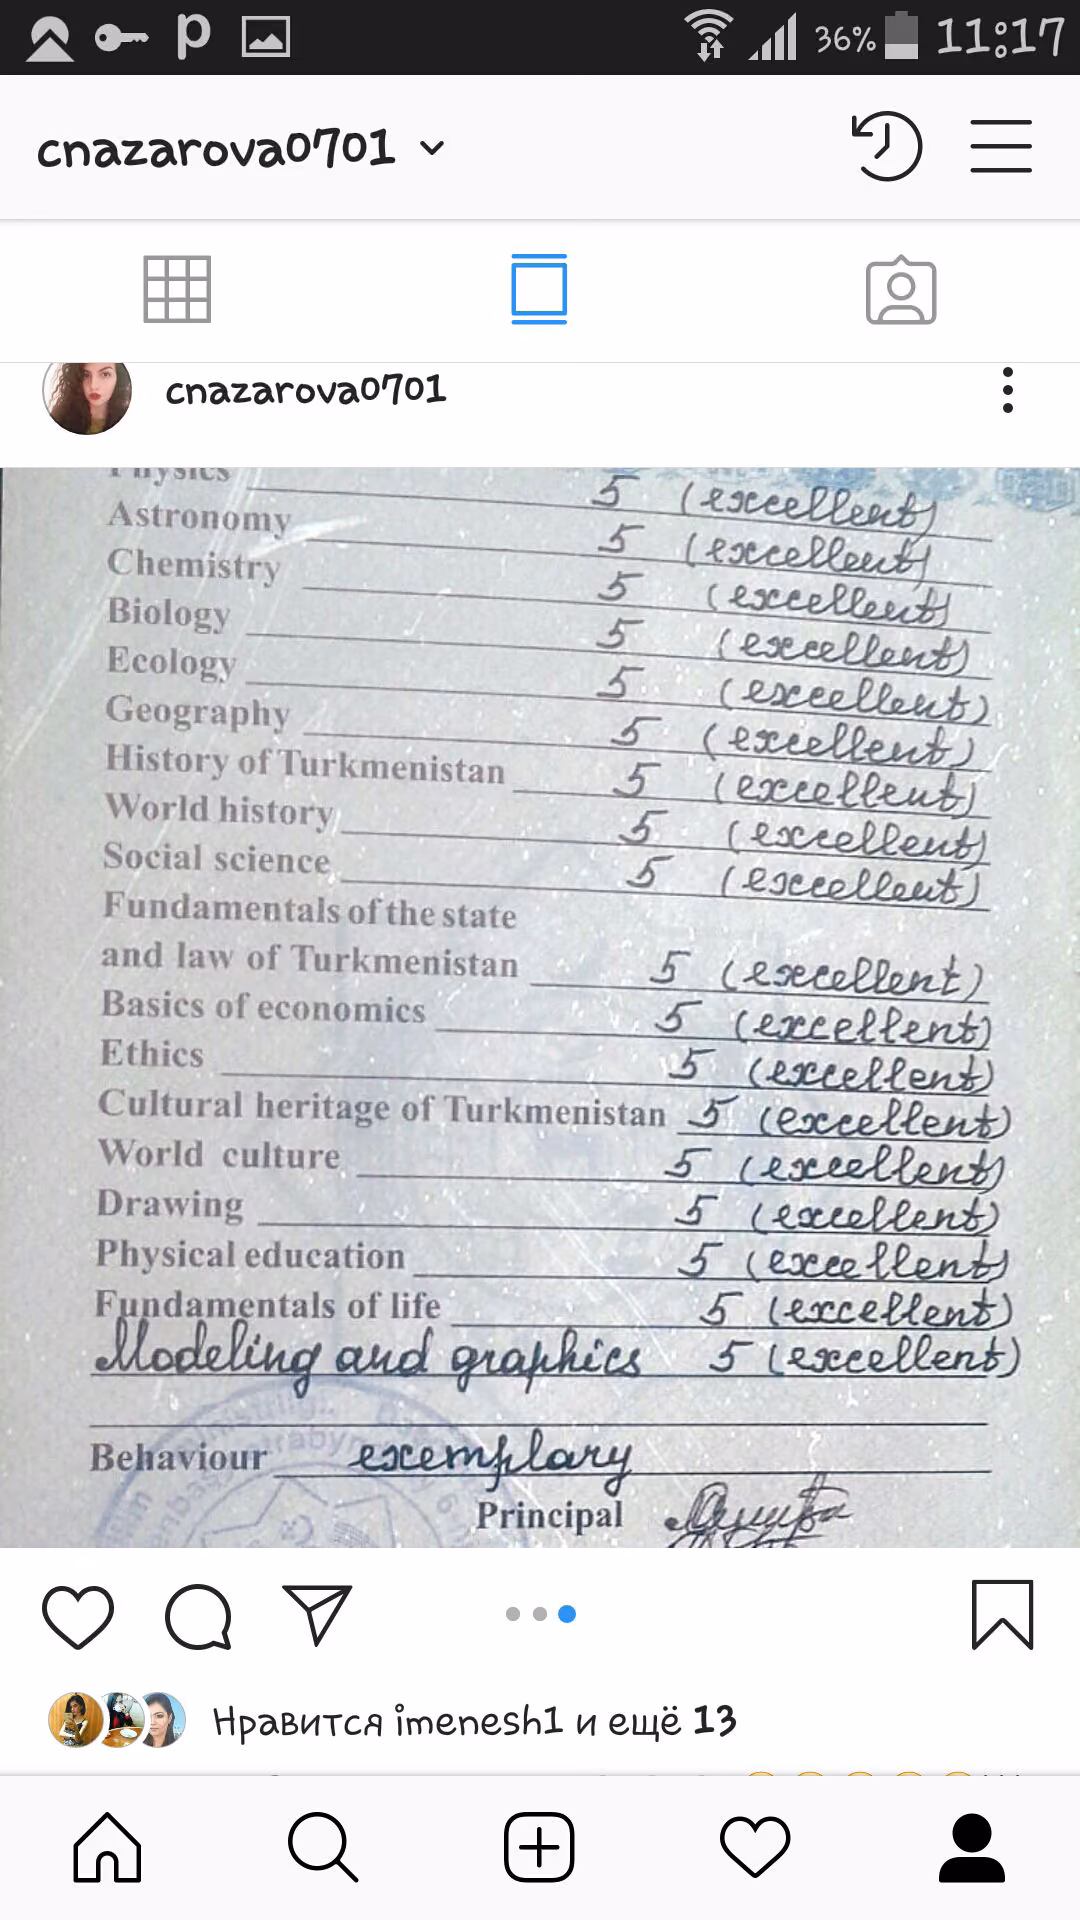 36% 11:17
cnazarova0701
cnazarova0701
Physics 5 (excellent)
Astronomy 5 (excellent)
Chemistry 5 (excellent)
Biology 5 (excellent)
Ecology 5 (excellent)
Geography 5 (excellent)
History of Turkmenistan 5 (excellent)
World history 5 (excellent)
Social science 5 (excellent)
Fundamentals of the state
and law of Turkmenistan 5 (excellent)
Basics of economics 5 (excellent)
Ethics 5 (excellent)
Cultural heritage of Turkmenistan 5 (excellent)
World culture 5 (excellent)
Drawing 5 (excellent)
Physical education 5 (excellent)
Fundamentals of life 5 (excellent)
Modeling and graphics 5 (excellent)
Behaviour exemplary
Principal
Нравится imenesh1 и ещё 13